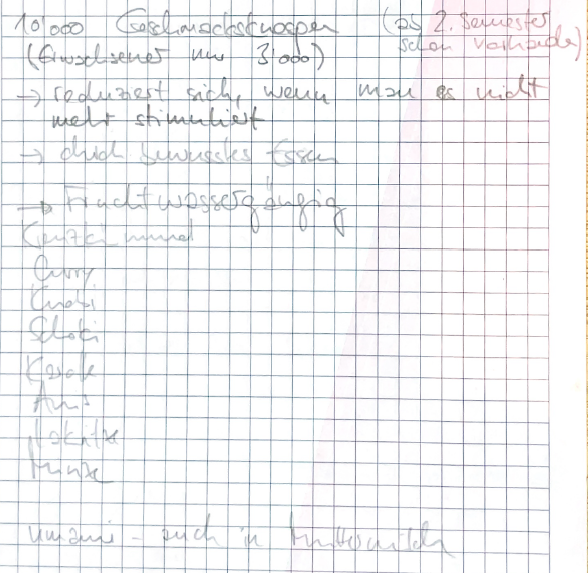 10'000 Geschmacksknospen (ab 2. Semester
schon vorhanden)
(Erwachsener nur 3'000)
→ reduziert sich, wenn man es nicht
mehr stimuliert
→ durch bewusstes Essen
→ Fruchtwassergängig
Curry
Knobi
Schoki
Anis
Lakritze
Minze
umami - auch in Muttermilch